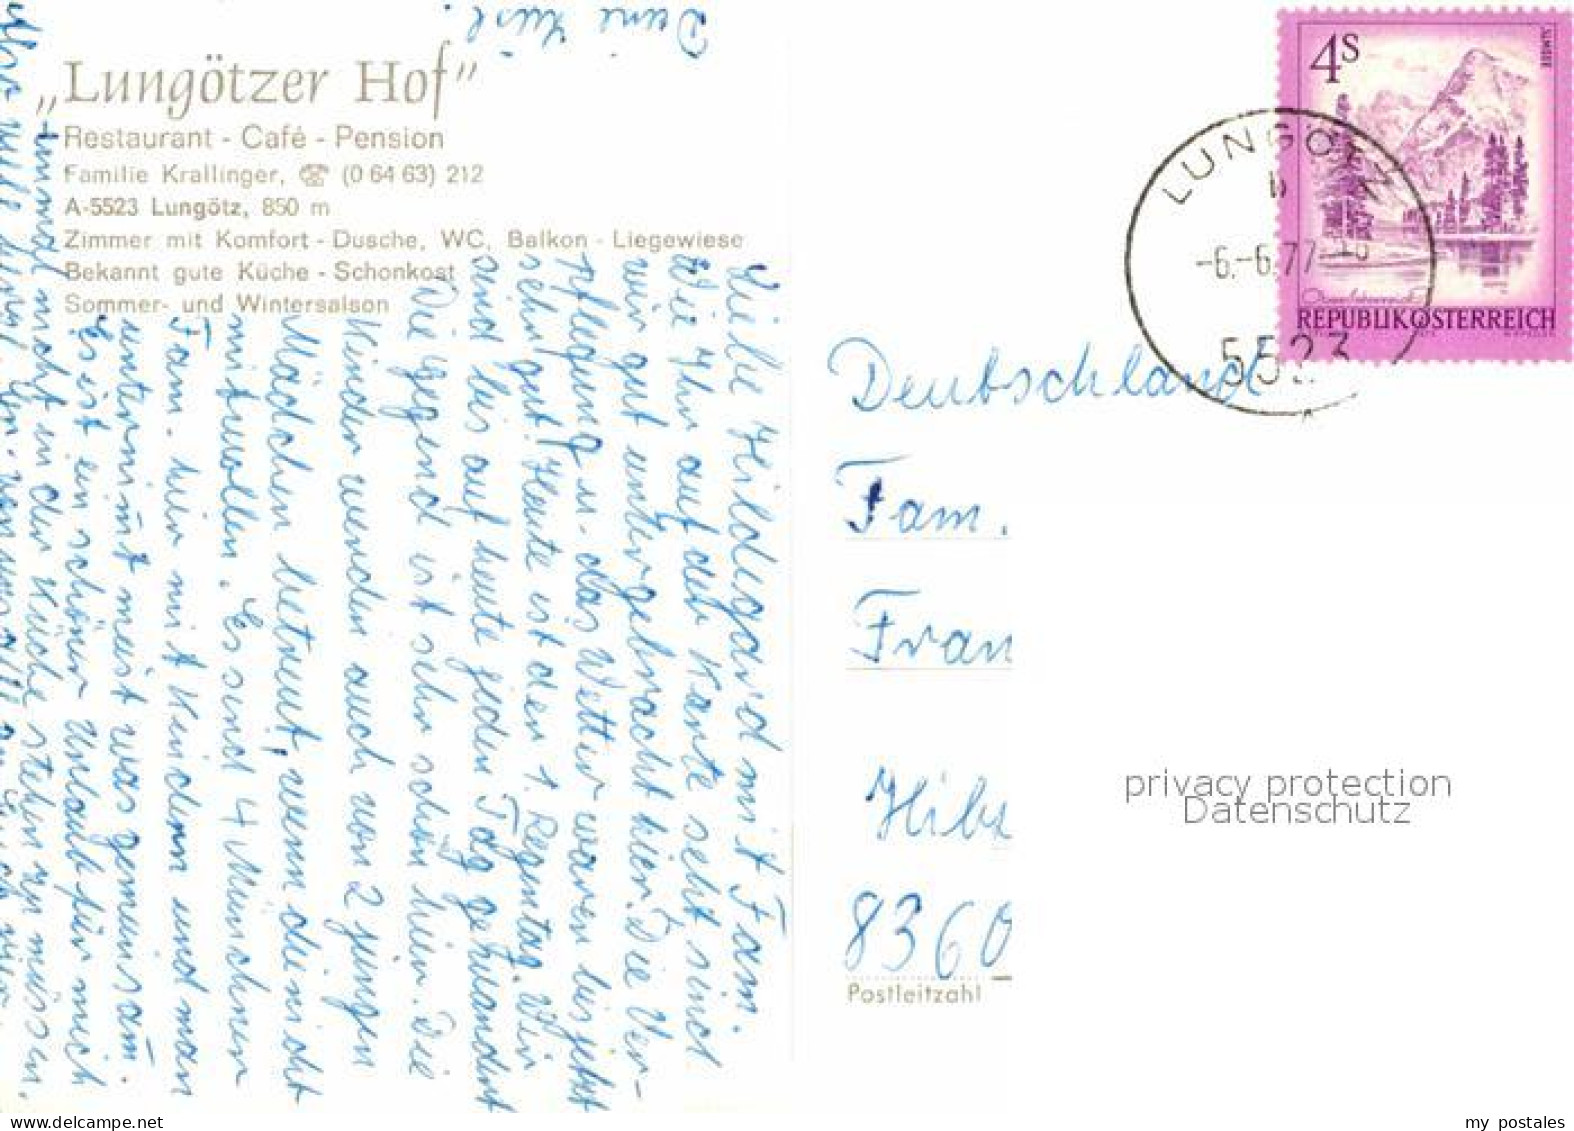 „Lungötzer Hof"
Restaurant - Café - Pension
Familie Krallinger, ☎ (0 64 63) 212
A-5523 Lungötz, 850 m
Zimmer mit Komfort - Dusche, WC, Balkon - Liegewiese
Bekannt gute Küche - Schonkost
Sommer- und Wintersaison
Liebe Hildegard mit Fam.
Wie Ihr auf der Karte seht sind
wir gut untergebracht hier. Die Ver-
pflegung u. das Wetter waren bis jetzt
sehr gut. Heute ist der 1. Regentag. Wir
sind bis auf heute jeden Tag gewandert
Die Gegend ist sehr schön hier. Die
Kinder werden auch von 2 jungen
Mädchen betreut, wenn die nicht
mitwollen. Es sind 4 Münchner
Fam. hier mit Kindern und man
unternimmt meist was gemeinsam.
Es ist ein schöner Urlaub für mich
einmal nicht in der Küche stehen zu müssen.
Deine Liesl.
4S
ALMSEE
Oberösterreich
REPUBLIK ÖSTERREICH
LUNGÖTZ
b
-6.-6.77-
5523
Deutschland
Fam.
Fran
Hibl
8360
Postleitzahl
privacy protection
Datenschutz
my postales